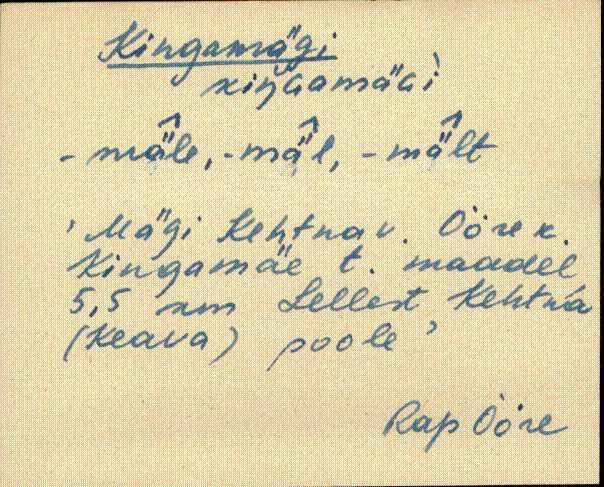 Kingamägi
kiŋGamäGì
- mä̂le, -mä̂l, -mä̂lt
'Mägi Kehtna v. Ööre k.
Kingamäe t. maadel
5,5 km Lellest Kehtna
(Keava) poole'
Rap Ööre